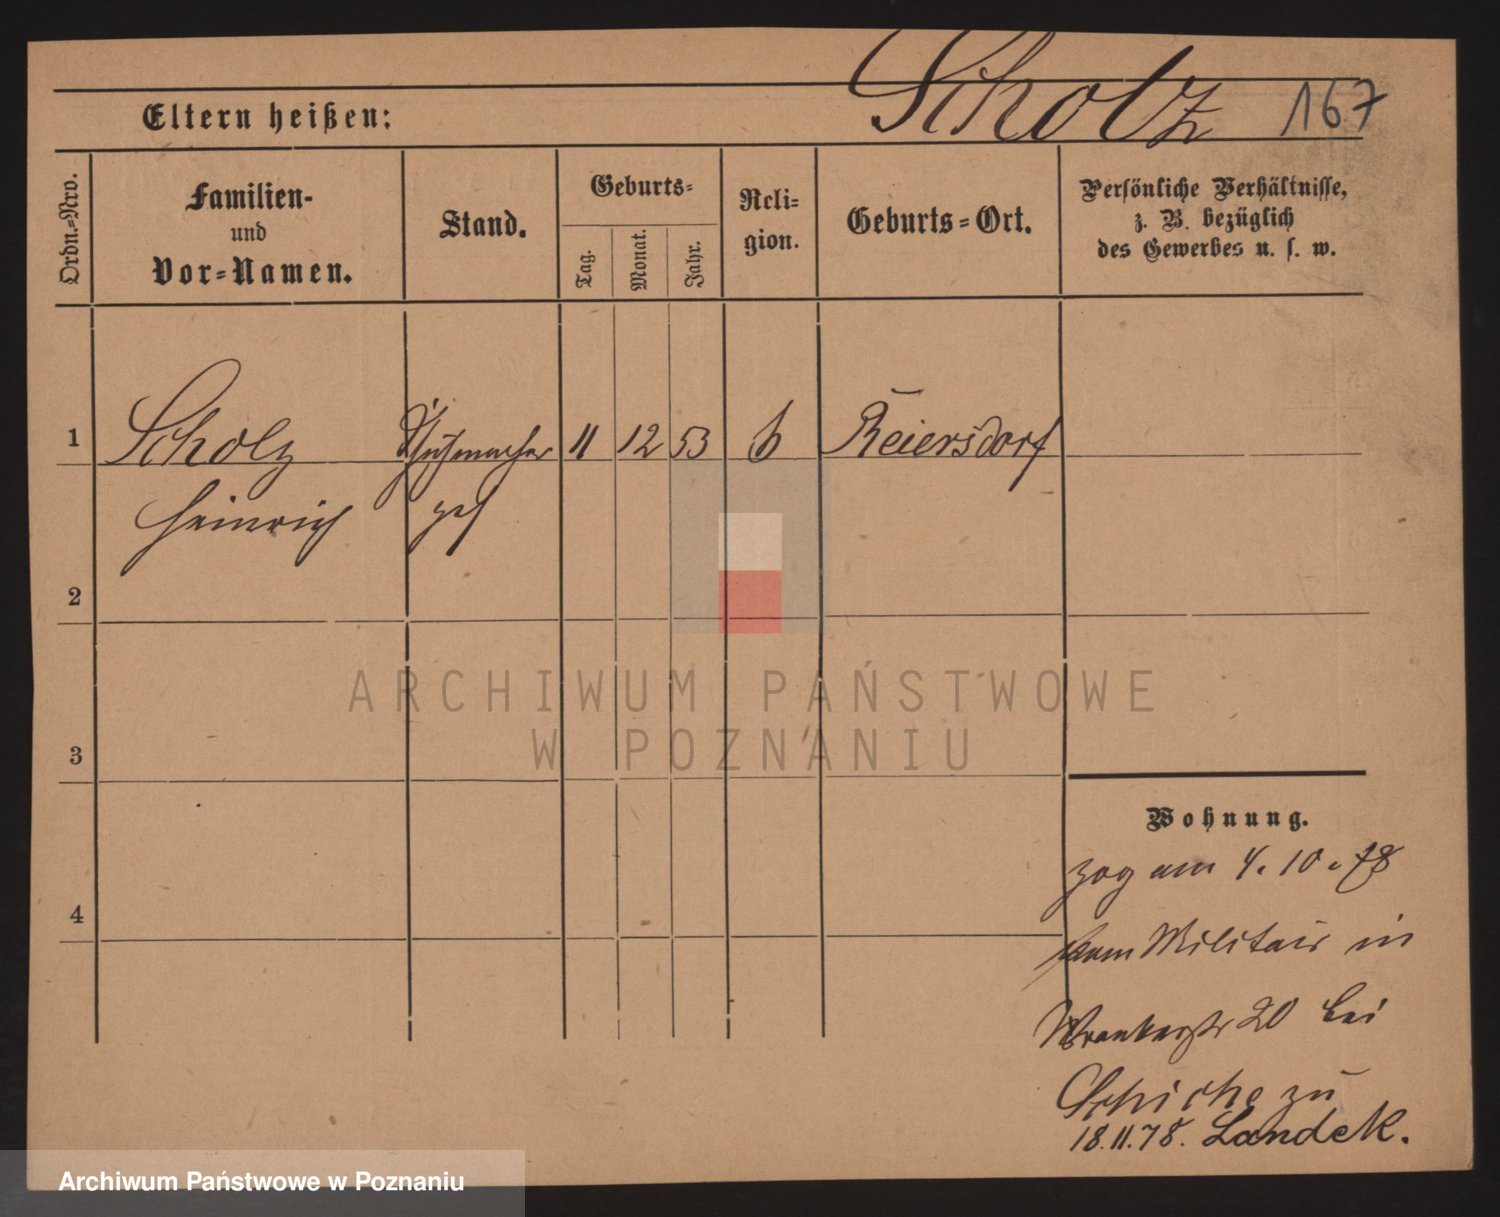 Scholz 167
Eltern heißen:
Ordn.-Nro.
Familien-
und
Vor-Namen.
Stand.
Geburts-
Tag.
Monat.
Jahr.
Reli-
gion.
Geburts-Ort.
Persönliche Verhältnisse,
z. B. bezüglich
des Gewerbes u. s. w.
1 Scholz Schuhmacher 11 12 53 Reiersdorf
Heinrich
2
3
4
Wohnung.
zog am 4. 10. 78
vom Militair in
Wronkerstr 20 bei
Schirke zu
18.11.78. Landek.
ARCHIWUM PAŃSTWOWE
W POZNANIU
Archiwum Państwowe w Poznaniu